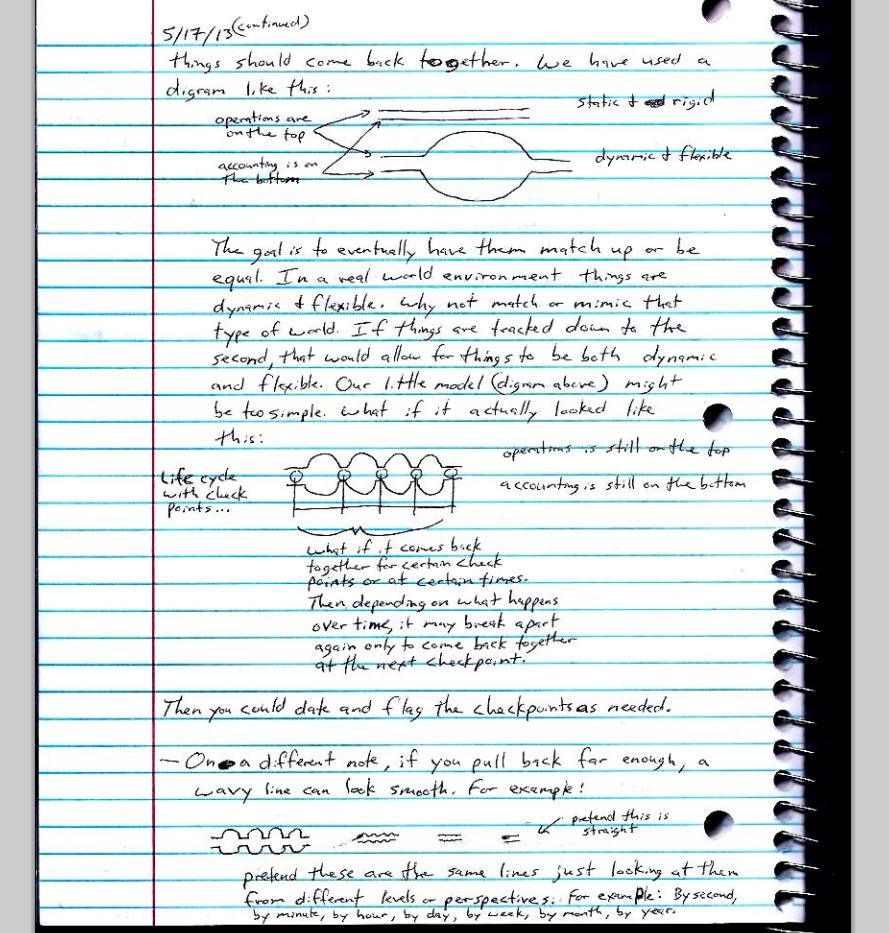 5/17/13 (continued)
things should come back together. We have used a
digram like this:
operations are
on the top
static & rigid
accounting is on
the bottom
dynamic & flexible
The goal is to eventually have them match up or be
equal. In a real world environment things are
dynamic & flexible. Why not match or mimic that
type of world. If things are tracked down to the
second, that would allow for things to be both dynamic
and flexible. Our little model (digram above) might
be too simple. What if it actually looked like
this:
operations is still on the top
accounting is still on the bottom
Life cycle
with check
points...
what if it comes back
together for certain check
points or at certain times.
Then, depending on what happens
over time, it may break apart
again only to come back together
at the next checkpoint.
Then you could date and flag the checkpoints as needed.
— On a different note, if you pull back far enough, a
wavy line can look smooth. For example!
pretend this is
straight
pretend these are the same lines just looking at them
from different levels or perspectives. For example: By second,
by minute, by hour, by day, by week, by month, by year.